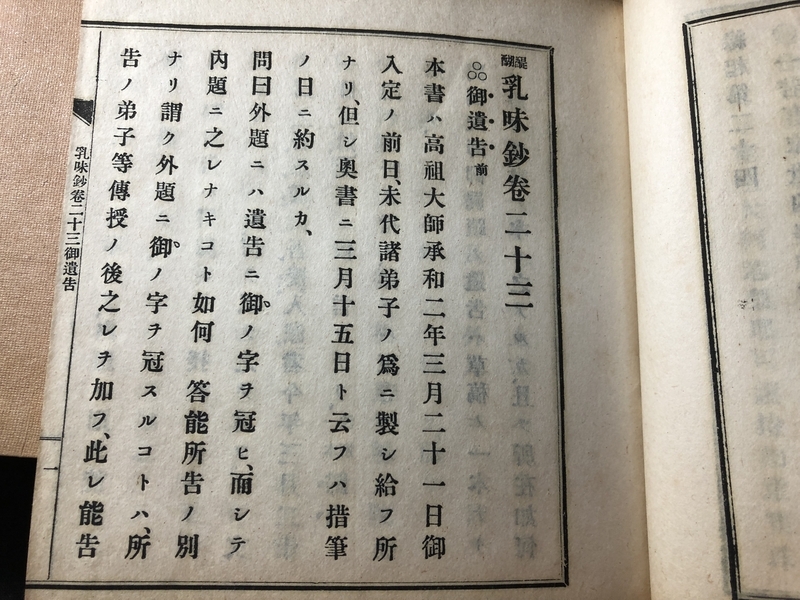 醍醐乳味鈔卷二十三
御遺告前
本書ハ高祖大師承和二年三月二十一日御
入定ノ前日、末代諸弟子ノ爲ニ製シ給フ所
ナリ、但シ奧書ニ三月十五日ト云フハ措筆
ノ日ニ約スルカ、
問曰外題ニハ遺告ニ御ノ字ヲ冠ヒ、而シテ
內題ニ之レナキコト如何 答能所告ノ別
ナリ謂ク外題ニ御ノ字ヲ冠スルコトハ、所
告ノ弟子等傳授ノ後之レヲ加フ、此レ能告
乳味鈔卷二十三御遺告
一